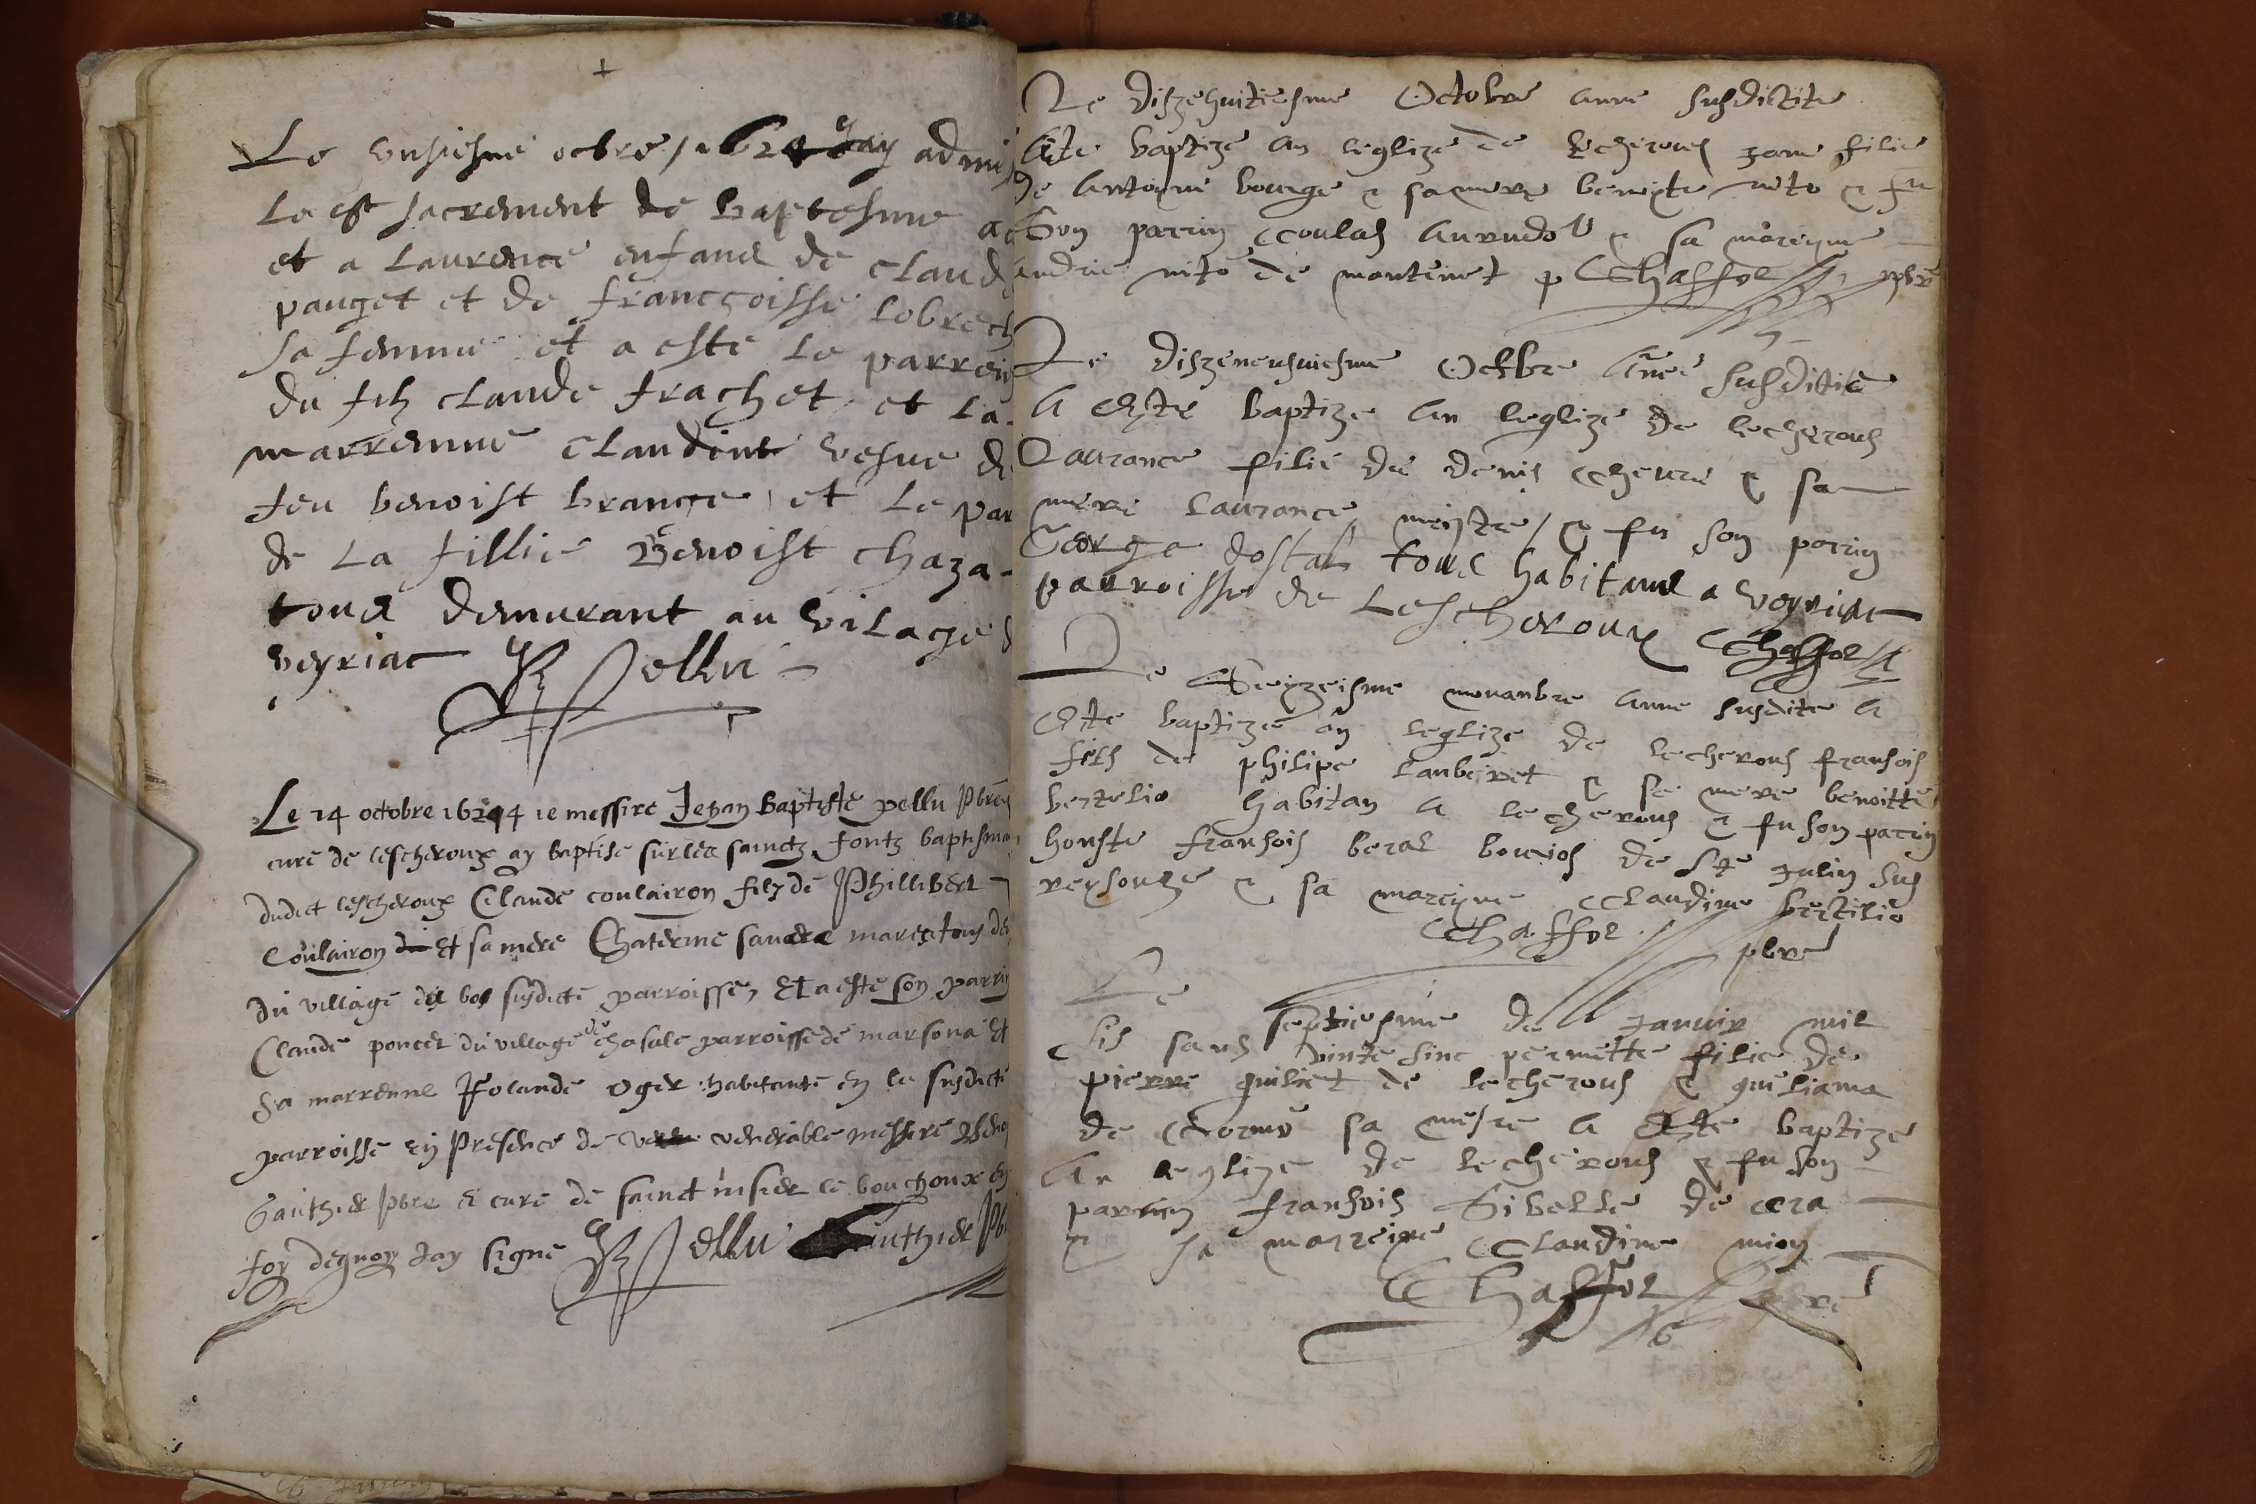 Le unsiesme octbre 1624 Jay admi
le st sacrement de baptesme a
et a Laurence enfans de claud
pauget et de francçoisse lobrech
sa femme et a este le parrein
du filz claude frachet et la
marrenne claudine vesve de
feu benoist brange et le par
de la fillie Benoist chaza
tous demurant au vilage d
veyriat Pellu
Le 14 octobre 1624 ie messire Jehan baptiste pellu Pbre
curé de lescheroux ay baptisé sur les sainctz fontz baptisma
dudict lescheroux Claude coulairon filz de Phillibert
Coulairon et sa mere Chaterine mares tous de
du village du bos susdicte parroisse, Et a este son parrin
Claude poncet du village de chasale parroisse de marsona et
Sa marrenne Yolande oger habitante en la susdicte
parroisse en Presence de venerable messire Beno
Gauthier Pbre et cure de sainct nisier le bouchoux en
foy dequoy Jay signe Pellu Gauthier Pb
Le diszehuitiesme Octobre anne susdictte
este baptize an leglize de lecherous Jane filie
de Antoyne bourge & sa mere benoyte nito & fu
Son parrin Coulas & sa mareyne
andrie nito de montenet p Chaffol pbre
Le diszeneufviesme Octbre Anee susdittë
A Este baptize an leglize de lecherous
Laurance filie de denis cheure & sa
mere Laurance & fu son parrin
George dostal tous habitans a veyriat
parroisse de Lescheroux Chaffol
Le Seyzeisme novanbre anne susdite a
Este baptize an leglize de lecherous fransois
fils de philipe lanberet & sa mere benoitte
bertelio habitan a lecherous & fu son parrin
honste fransois beral de St Julin sus
reysouze & sa mareyne Claudine bertilio
Chaffol pbre
Le septiesme de Januir mil
sis sans vinte sinc permette filie de
pierre guiliet de lecherous & guiliama
de Cormo sa mere a Este baptize
An leglize de lecherous & fu son
parrin fransois Sibelle de cra
& sa marreine Claudine mion
Chaffol pbre